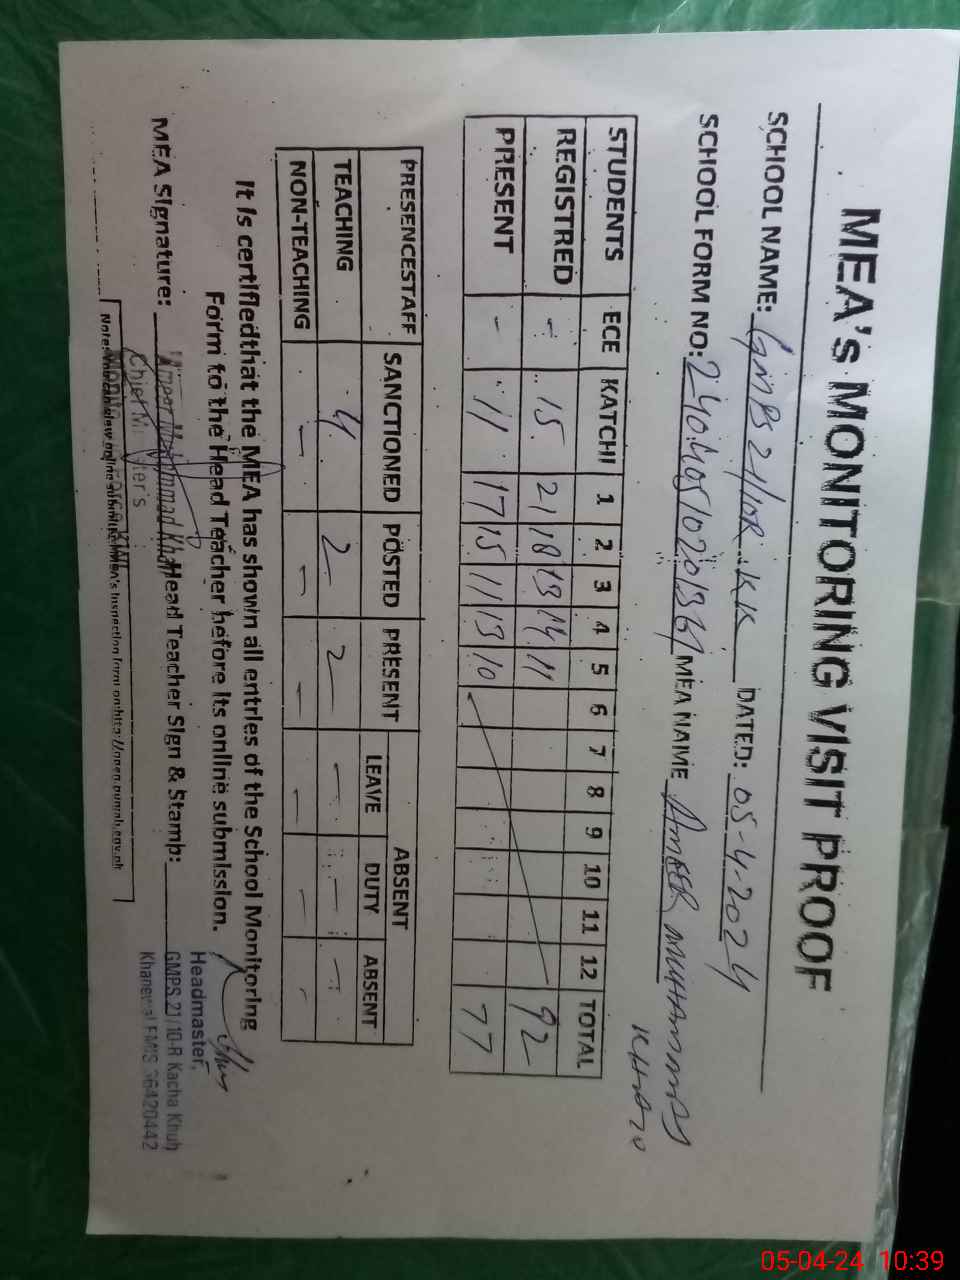 MEA's MONITORING VISIT PROOF
SCHOOL NAME: GMPS 21/10R .KK DATED: 05-4-2024
SCHOOL FORM NO: MEA NAME AMEER MUHAMMAD
KHAN
STUDENTS ECE KATCHI 1 2 3 4 5 6 7 8 9 10 11 12 TOTAL
REGISTRED - 15 21 18 13 14 11 92
PRESENT - 11 17 15 11 13 10 77
PRESENCESTAFF SANCTIONED POSTED PRESENT ABSENT
LEAVE DUTY ABSENT
TEACHING 4 2 2 - - -
NON-TEACHING - - - - - -
It is certifiedthat the MEA has shown all entries of the School Monitoring
Form to the Head Teacher before its online submission.
MEA Signature: Head Teacher Sign & Stamp:
Ameer Muhammad Khan
Chief Minister's
Headmaster,
GMPS 21/10-R Kacha Khuh
Khanewal EMIS 36420442
Note: You can view online submitted MEA's inspection form on http://open.punjab.gov.pk
05-04-24 10:39